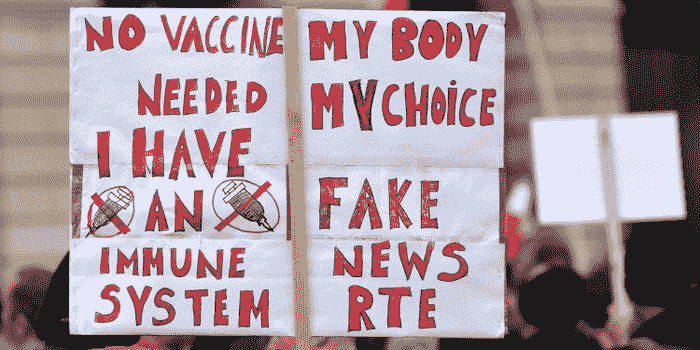 NO VACCINE
NEEDED
I HAVE
AN
IMMUNE
SYSTEM
MY BODY
MY CHOICE
FAKE
NEWS
RTE